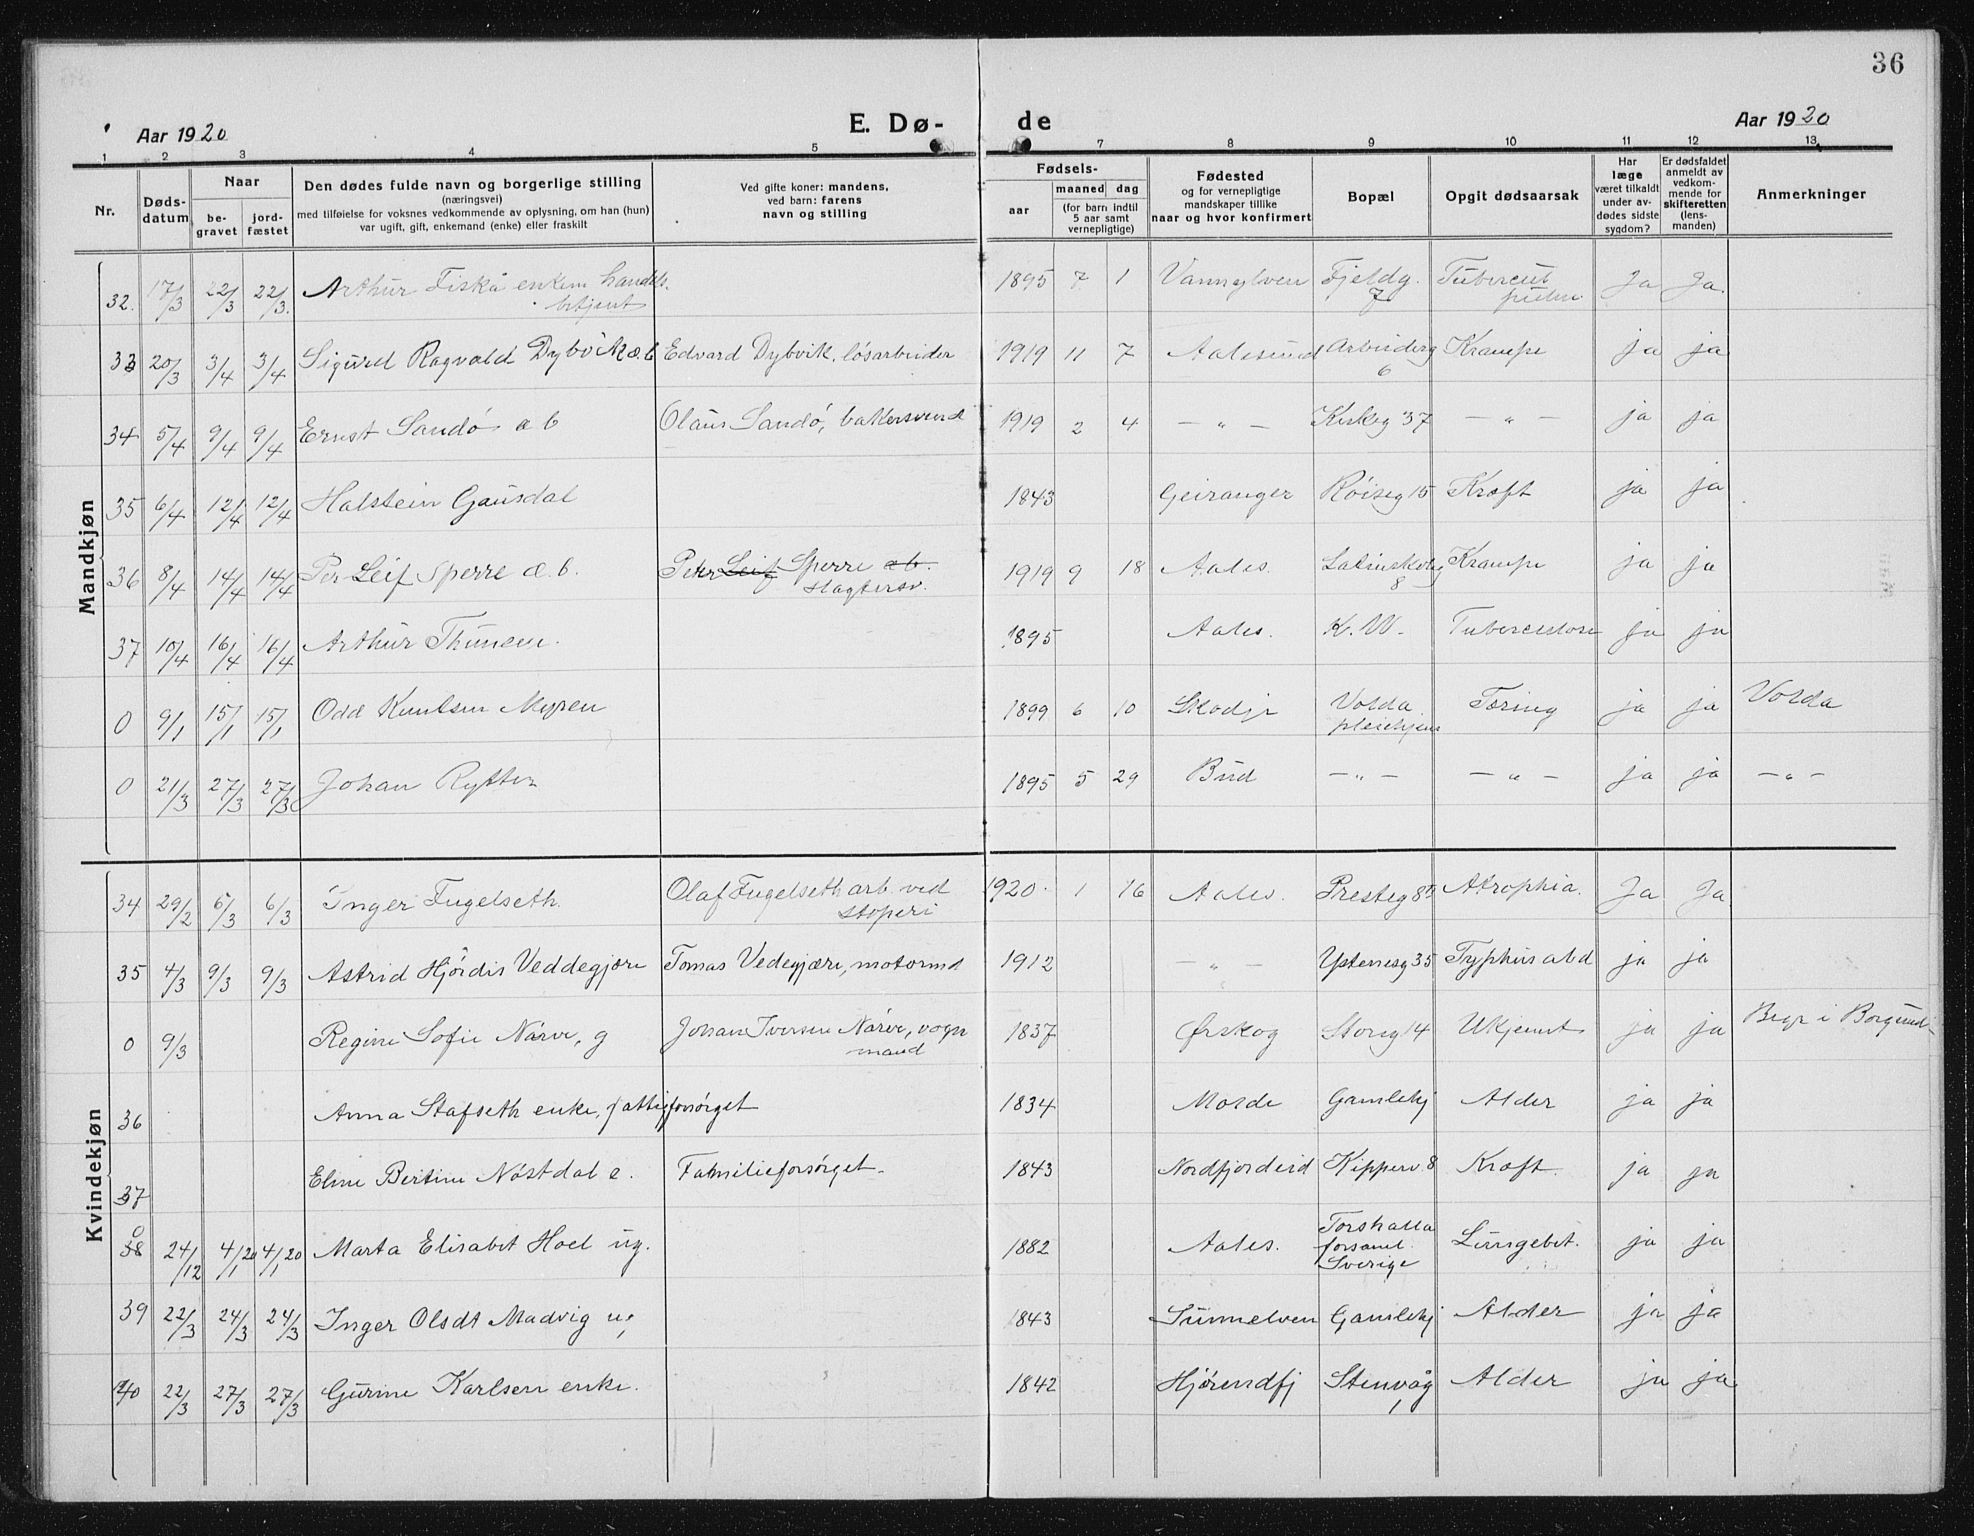 36
Aar 1920
E. Dø-
de
Aar 1920
1 2 3 4 5 7 8 9 10 11 12 13
Nr.
Døds-
datum
Naar
be-
gravet
jord-
fæstet
Den dødes fulde navn og borgerlige stilling
(næringsvei)
med tilføielse for voksnes vedkommende av oplysning, om han (hun)
var ugift, gift, enkemand (enke) eller fraskilt
Ved gifte koner: mandens,
ved barn: farens
navn og stilling
Fødsels-
aar
maaned
dag
(for barn indtil
5 aar samt
vernepligtige)
Fødested
og for vernepligtige
mandskaper tillike
naar og hvor konfirmert
Bopæl
Opgit dødsaarsak
Har
læge
været tilkaldt
under av-
dødes sidste
sygdom?
Er dødsfaldet
anmeldt av
vedkom-
mende for
skifteretten
(lens-
manden)
Anmerkninger
Mandkjøn
32. 17/3 22/3 22/3. Arthur Fiskå enkem handels. 1895 7 1 Vannylven Fjeldg. Tubercul Ja Ja.
betjent 7
33 20/3 3/4 3/4 Sigurd Ragvald Dybvik æ.b Edvard Dybvik, løsarbeider 1919 11 7 Aalesund Arbeiderg Krampe ja ja
6
34 5/4 9/4 9/4 Ernst Sandø æ b Olaus Sandø, bakersvend 1919 2 4 — „ — Kirkeg 37 — „ — ja ja
35 6/4 12/4 12/4 Halstein Gausdal 1843 Geiranger Røiseg 15 Kræft ja ja
36 8/4 14/4 14/4 Per Leif Sperre æ.b. Peter Leif Sperre æb. 1919 9 18 Aales. Latinskolg Krampe ja ja
slagtersv. 8
37 10/4 16/4 16/4 Arthur Thunem. 1895 Aales. K. W. Tuberculose ja ja
0 9/1 15/1 15/1 Odd Knutsen Myren 1899 6 10 Skodje Volda Tæring ja ja Volda
pleiehjem
0 21/3 27/3 27/3 Johan Rytter 1895 5 29 Bud — „ — — „ — ja ja — „ —
Kvindekjøn
34 29/2 6/3 6/3 Inger Fugelseth. Olaf Fugelseth arb. ved 1920. 1 16 Aales. Presteg 8 Atrophia. Ja Ja
støperi
35 4/3 9/3 9/3 Astrid Hjørdis Veddegjære Tomas Vedegjære, motormd 1912 — „ — Ystenesg 35 Typhus abd ja ja
0 9/3 Regine Sofie Nørve, g Johan Iversen Nørve, vogn 1837 Ørskog Storg 14 Ukjent ja ja Begr i Borgund
mand
36 Anna Stafseth enke, fattigforsørget 1834 Molde Gamlehj Alder ja ja
37 Eline Bertine Nøstdal e. Familieforsørget 1843 Nordfjordeid Kipperv. 8 Kræft. ja ja
0
38 24/12 4/1 20 4/1 20 Marta Elisabet Hoel ug. 1882 Aales. Torshalla Lungebet. ja ja
forsaml.
Sverige
39 22/3 24/3 24/3 Inger Olsdt Madvig ug 1843 Sunnelven Gamlehj Alder ja ja
40 22/3 27/3 27/3 Gurine Karlsen enke. 1842 Hjørendfj Stenvåg Alder ja ja
1